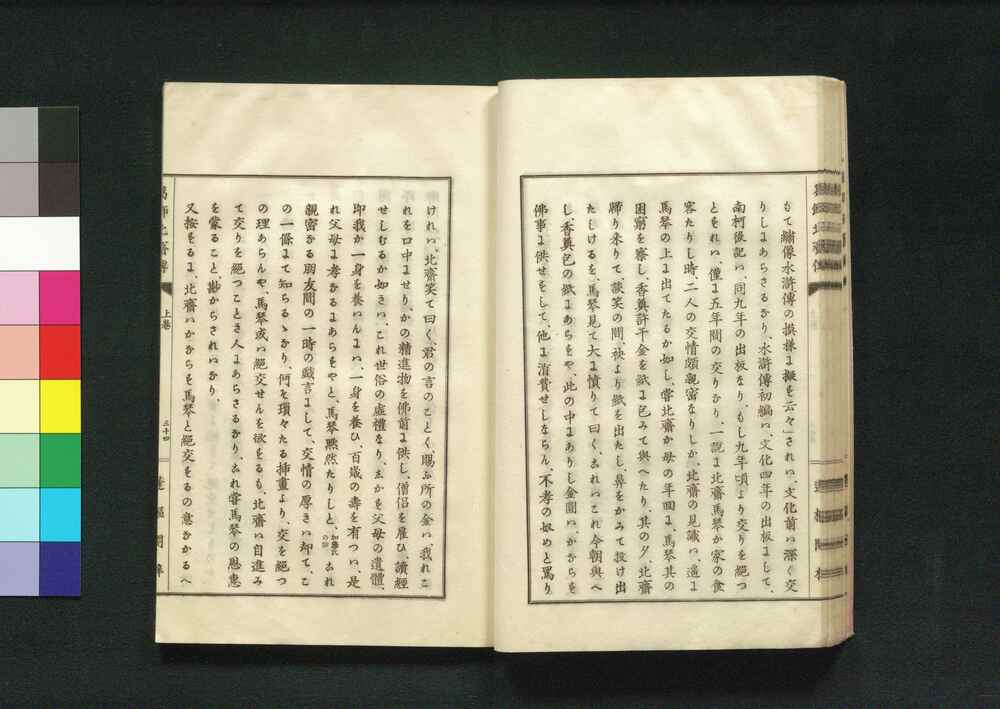 もて繡像水滸傳の摸樣に擬を云々」されバ、文化前ハ深く交
りしにあらさるなり、水滸傳初編ハ、文化四年の出板にして、
南柯後記ハ、同九年の出板なり、もし九年頃より交りを絕つ
とそれバ、僅に五年間の交りなり、一說に北齋馬琴か家の食
客たりし時、二人の交情頗親密なりしか、北齋の見識ハ、遥に
馬琴の上に出てたるか如し、嘗北齋か母の年回に、馬琴其の
困窮を察し、香奠許干金を紙に包みて與へたり、其の夕、北齋
歸り来りて談笑の間、袂より紙を出たし、鼻をかみて投け出
たしけるを、馬琴見て大に憤りて曰く、これハこれ今朝與へ
し、香奠包の紙にあらもや、此の中にありし金圓ハ、かならを
佛事に供せもして、他に消費せしならん、不孝の奴めと罵り
けれバ、北齋笑て曰く、君の言のことく、賜ふ所の金ハ、我れこ
れを口中にせり、かの精進物を佛前に供し、僧侶を雇ひ、讀經
せしむるか如きハ、これ世俗の虛禮なり、しかも父母の遺體、
即我か一身を養ハんにハ、一身を養ひ、百歳の壽を有つハ、是
れ父母に孝なるにあらもやと、馬琴默然たりしと、加藤氏の話これ
親密なる朋友間の一時の戯言にして、交情の厚きハ却て、こ
の一條にて知らるゝなり、何そ瑣々たる挿畫より、交を絕つ
の理あらんや、馬琴或ハ絕交せんを欲をるも、北齋ハ自進み
て交りを絕つことき人にあらさるなり、これ嘗馬琴の恩惠
を蒙ること、尠からされバなり、
又按をるに、北齋ハかならも馬琴と絕交をるの意なかるへ
上巻
三十四